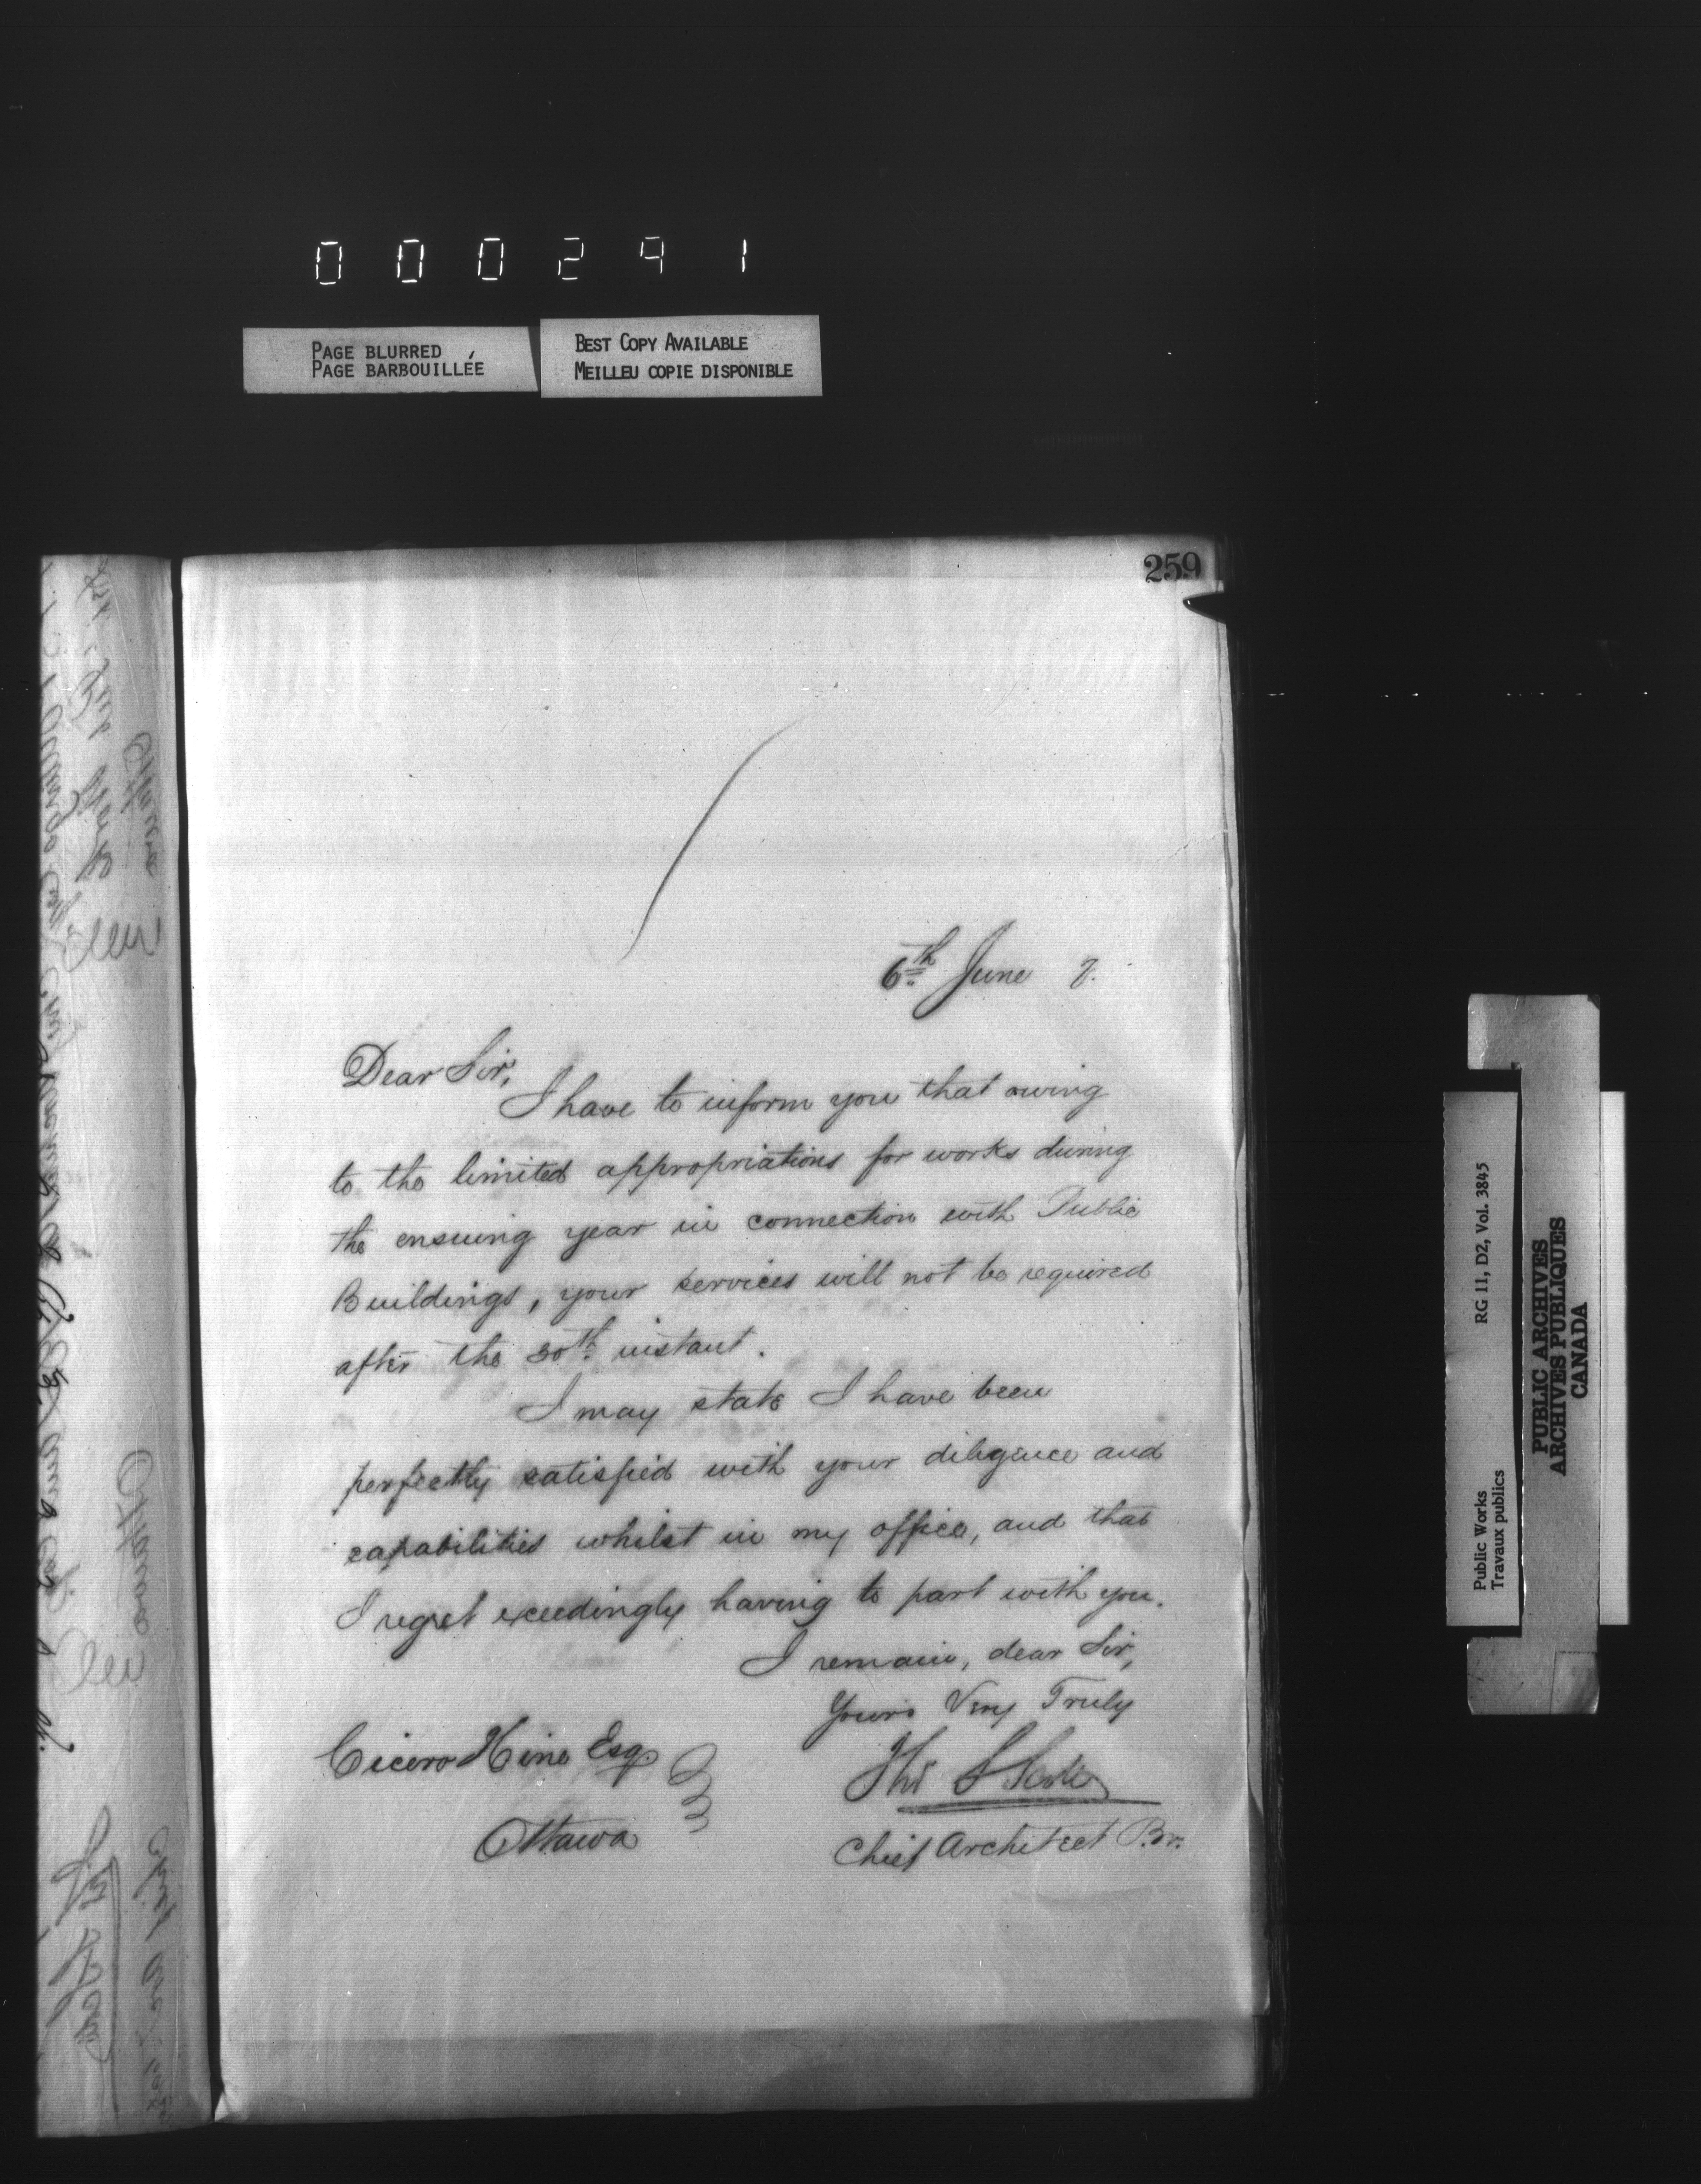 000291
PAGE BLURRED
PAGE BARBOUILLÉE
BEST COPY AVAILABLE
MEILLEU COPIE DISPONIBLE
259
6th June 7.
Dear Sir,
I have to inform you that owing
to the limited appropriations for works during
the ensuing year in connection with Public
Buildings, your services will not be required
after the 30th instant.
I may state I have been
perfectly satisfied with your diligence and
capabilities whilst in my office, and that
I regret exceedingly having to part with you.
I remain, dear Sir,
Yours Very Truly
Thos S Scott
Chief Architect Br.
Cicero Hine Esq.
Ottawa
Public Works RG 11, D2, Vol. 3845
Travaux publics
PUBLIC ARCHIVES
ARCHIVES PUBLIQUES
CANADA